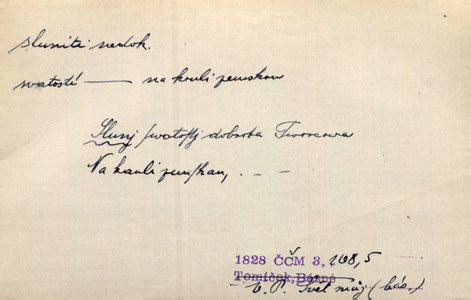 sluniti nedok.
svatosti —— na kouli zemskou
Sluný swatosti dobrota Tworcowa
Na kauli zemskau, . – –
1828 ČČM 3, 108,5
Tomíček, Básně
V. P. Svět můj (bás.)